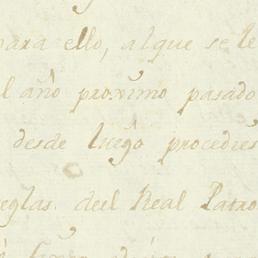 para ello, al que se le
l año proximo pasado
desde luego procedies
eglas del Real Patro